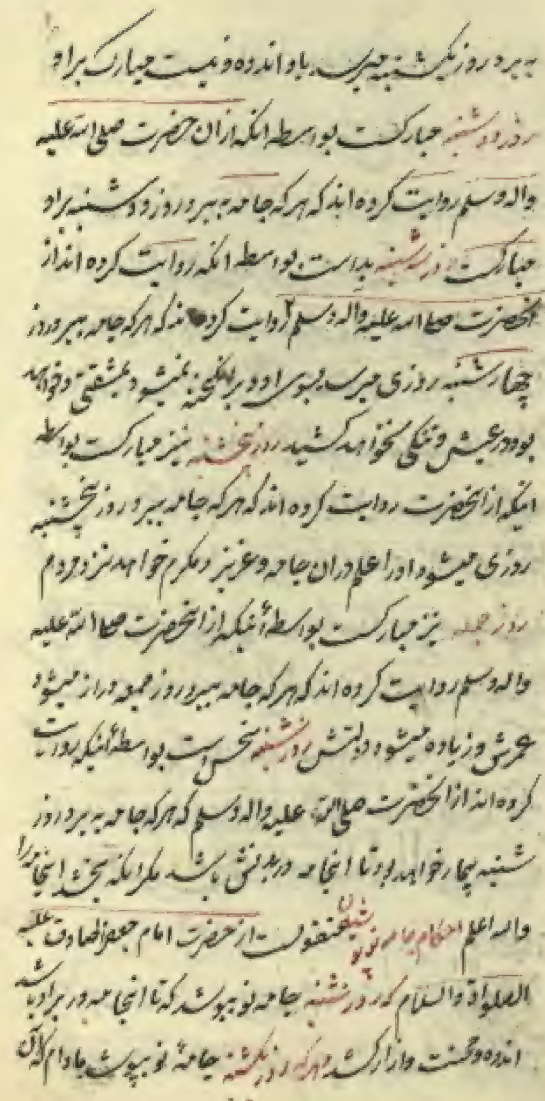 به برد روز یکشنبه میرسد باو اندوه و نیست مبارک براو
روز دوشنبه مبارکست بواسطه انکه ازان حضرت صلی الله علیه
واله وسلم روایت کرده اند که هرکه جامه به برد روز دوشنبه براو
مبارکست روز سه شنبه بد است بواسطه انکه روایت کرده اند از
انحضرت صلی الله علیه واله وسلم روایت کرده اند که هرکه جامه ببرد روز
چهارشنبه روزی میرسد بسوی او و میشود بمشقتی و خواهد
بود در عیش و تنگی نخواهد کشید روز پنجشنبه نیز مبارکست بواسطه
اینکه از انحضرت روایت کرده اند که هرکه جامه ببرد روز پنجشنبه
روزی میشود او را علم دران جامه و عزیز و مکرم خواهد نزد مردم
روز جمعه نیز مبارکست بواسطهٔ اینکه از انحضرت صلی الله علیه
واله وسلم روایت کرده اند که هرکه جامه ببرد روز جمعه دراز میشود
عمرش و زیاده میشود دولتش روز شنبه نحس است بواسطهٔ اینکه روایت
کرده اند از انحضرت صلی الله علیه واله وسلم که هرکه جامه به برد روز
شنبه بیمار خواهد بود تا انجامه در بدنش باشد مکر انکه ببخشد انجامه را
والله اعلم احکام جامه نو پوشیدن منقولست از حضرت امام جعفر الصادق علیه
الصلواة والسلام که روز شنبه جامه نو بپوشد که تا انجامه در براو باشد
اندوه و محنت و ازار کشد و هرکه روز یکشنبه جامهٔ نو بپوشد مادام که آن